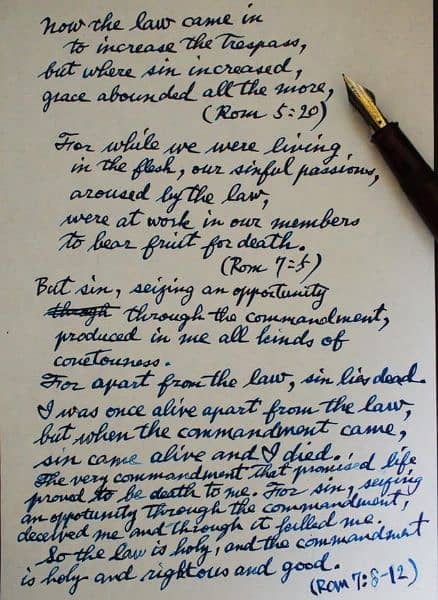 Now the law came in
to increase the trespass,
but where sin increased,
grace abounded all the more,
(Rom 5:20)
For while we were living
in the flesh, our sinful passions,
aroused by the law,
were at work in our members
to bear fruit for death.
(Rom 7:5)
But sin, seizing an opportunity
though through the commandment,
produced in me all kinds of
covetousness.
For apart from the law, sin lies dead.
I was once alive apart from the law,
but when the commandment came,
sin came alive and I died.
The very commandment that promised life
proved to be death to me. For sin, seizing
an oppotunity through the commandment,
deceived me and through it felled me.
So the law is holy, and the commandment
is holy and rightous and good.
(Rom 7:8-12)